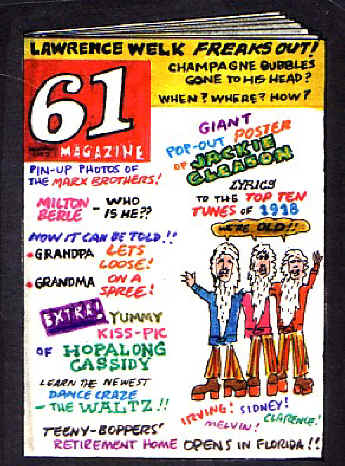 LAWRENCE WELK FREAKS OUT!
CHAMPAGNE BUBBLES
GONE TO HIS HEAD?
WHEN? WHERE? HOW?
61
MAGAZINE
PIN-UP PHOTOS OF
THE MARX BROTHERS!
MILTON
BERLE - WHO
IS HE??
NOW IT CAN BE TOLD!!
GRANDPA LETS
LOOSE!
GRANDMA ON A
SPREE!
EXTRA! YUMMY
KISS-PIC
OF HOPALONG
CASSIDY
LEARN THE NEWEST
DANCE CRAZE
- THE WALTZ!!
TEENY-BOPPERS'
RETIREMENT HOME OPENS IN FLORIDA!!
GIANT
POP-OUT POSTER
OF JACKIE
GLEASON
LYRICS
TO THE TOP TEN
TUNES OF 1918
WE'RE OLD!!
IRVING! SIDNEY! CLARENCE!
MELVIN!